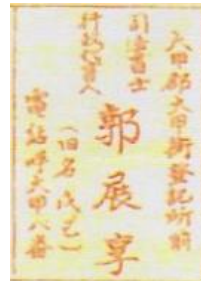 大甲郡大甲街登記所前
司法書士
行政代書人
郭展亨
(旧名戊己)
電話呼大甲八番